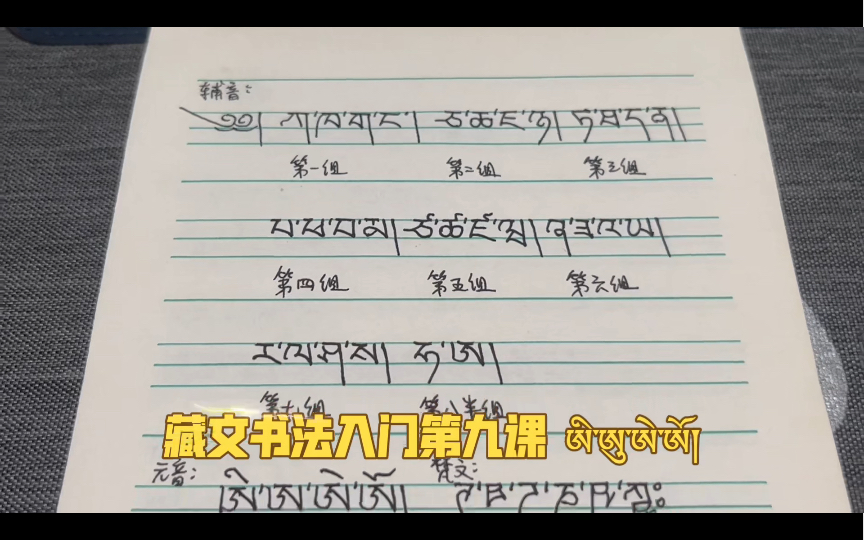 辅音:
༄༅། ཀ་ཁ་ག་ང་། ཅ་ཆ་ཇ་ཉ། ཏ་ཐ་ད་ན།
第一组 第二组 第三组
པ་ཕ་བ་མ། ཙ་ཚ་ཛ་ཝ། ཞ་ཟ་འ་ཡ།
第四组 第五组 第六组
ར་ལ་ཤ་ས། ཧ་ཨ།
第七组 第八半组
藏文书法入门第九课 ཨི་ཨུ་ཨེ་ཨོ།
元音: 梵文:
ཨི་ཨུ་ཨེ་ཨོ།